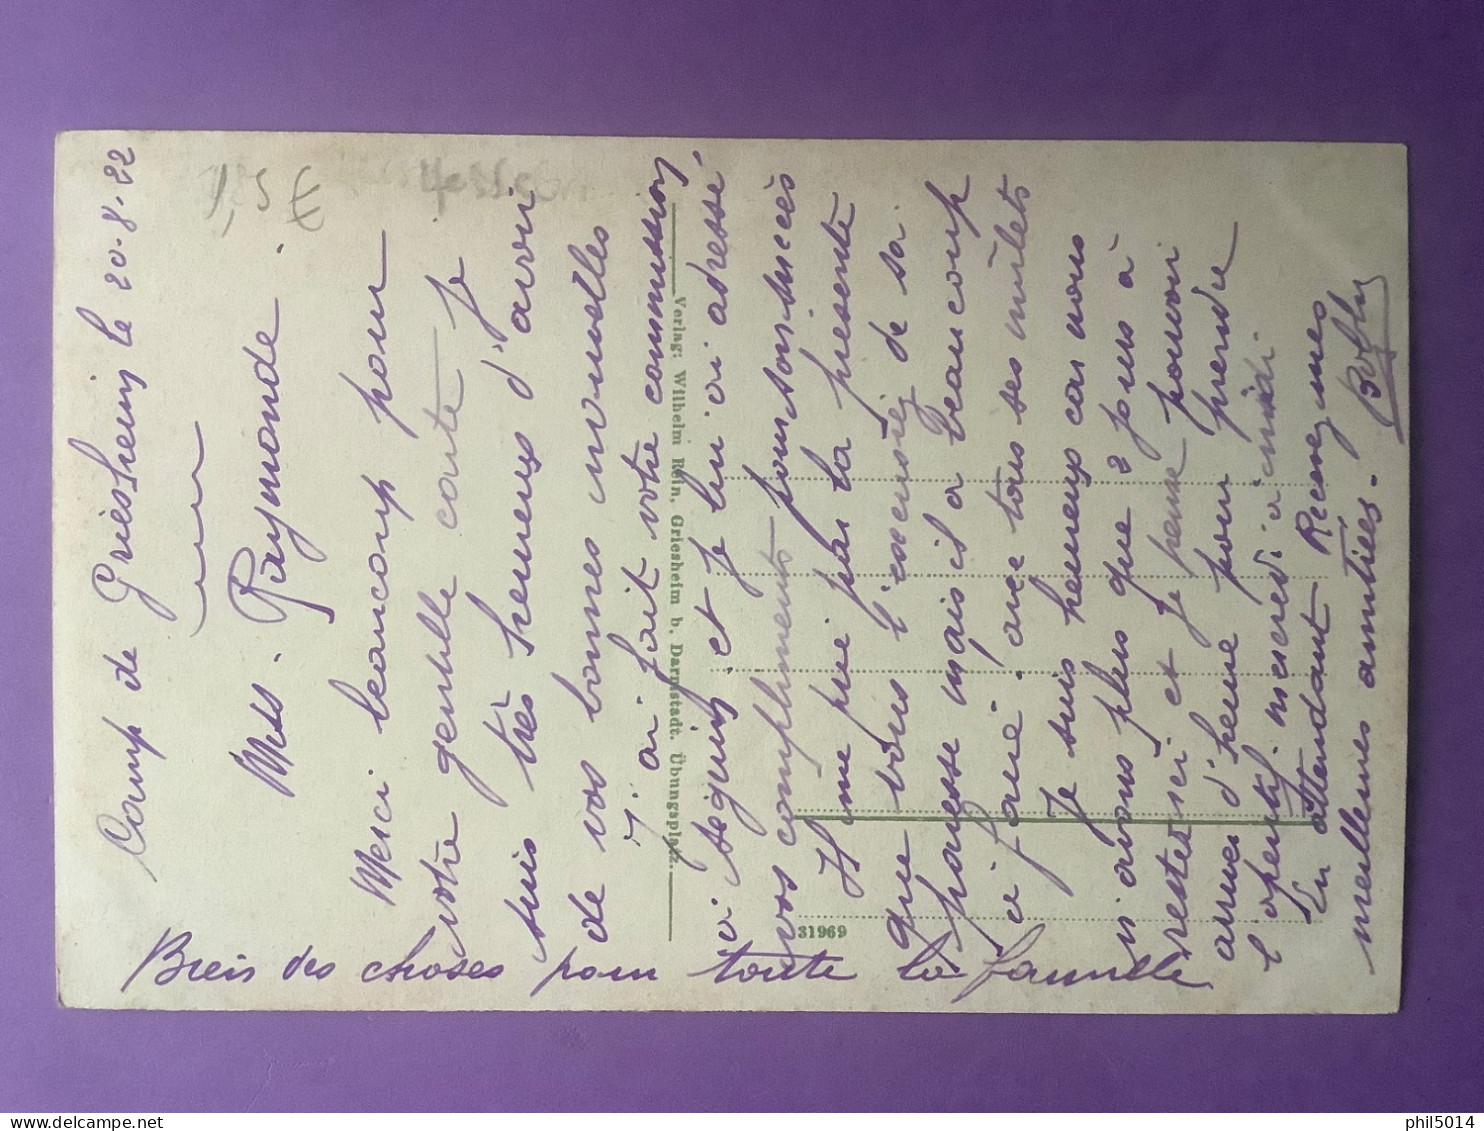 Camp de Griesheim le 20.8.22
Mlle. Raymonde.
Merci beaucoup pour
votre gentille carte je
suis très heureux d'avoir
de vos bonnes nouvelles
J'ai fait votre commission
à Seguin et je lui ai adressé
vos compliments pour son succès
Il me prie par la présente
que vous l'excusiez de sa
paresse mais il a beaucoup
à faire avec tous ses mulets
Je suis heureux car nous
n'avons plus que 8 jours à
rester ici et je pense pouvoir
arriver d'heure pour prendre
l'apéritif mercredi à midi.
En attendant Recevez mes
meilleures amitiés.
Bien des choses pour toute la famille
Verlag: Wilhelm Rein, Griesheim b. Darmstadt. Übungsplatz.
31969
1,5 €
Hessen
phil5014